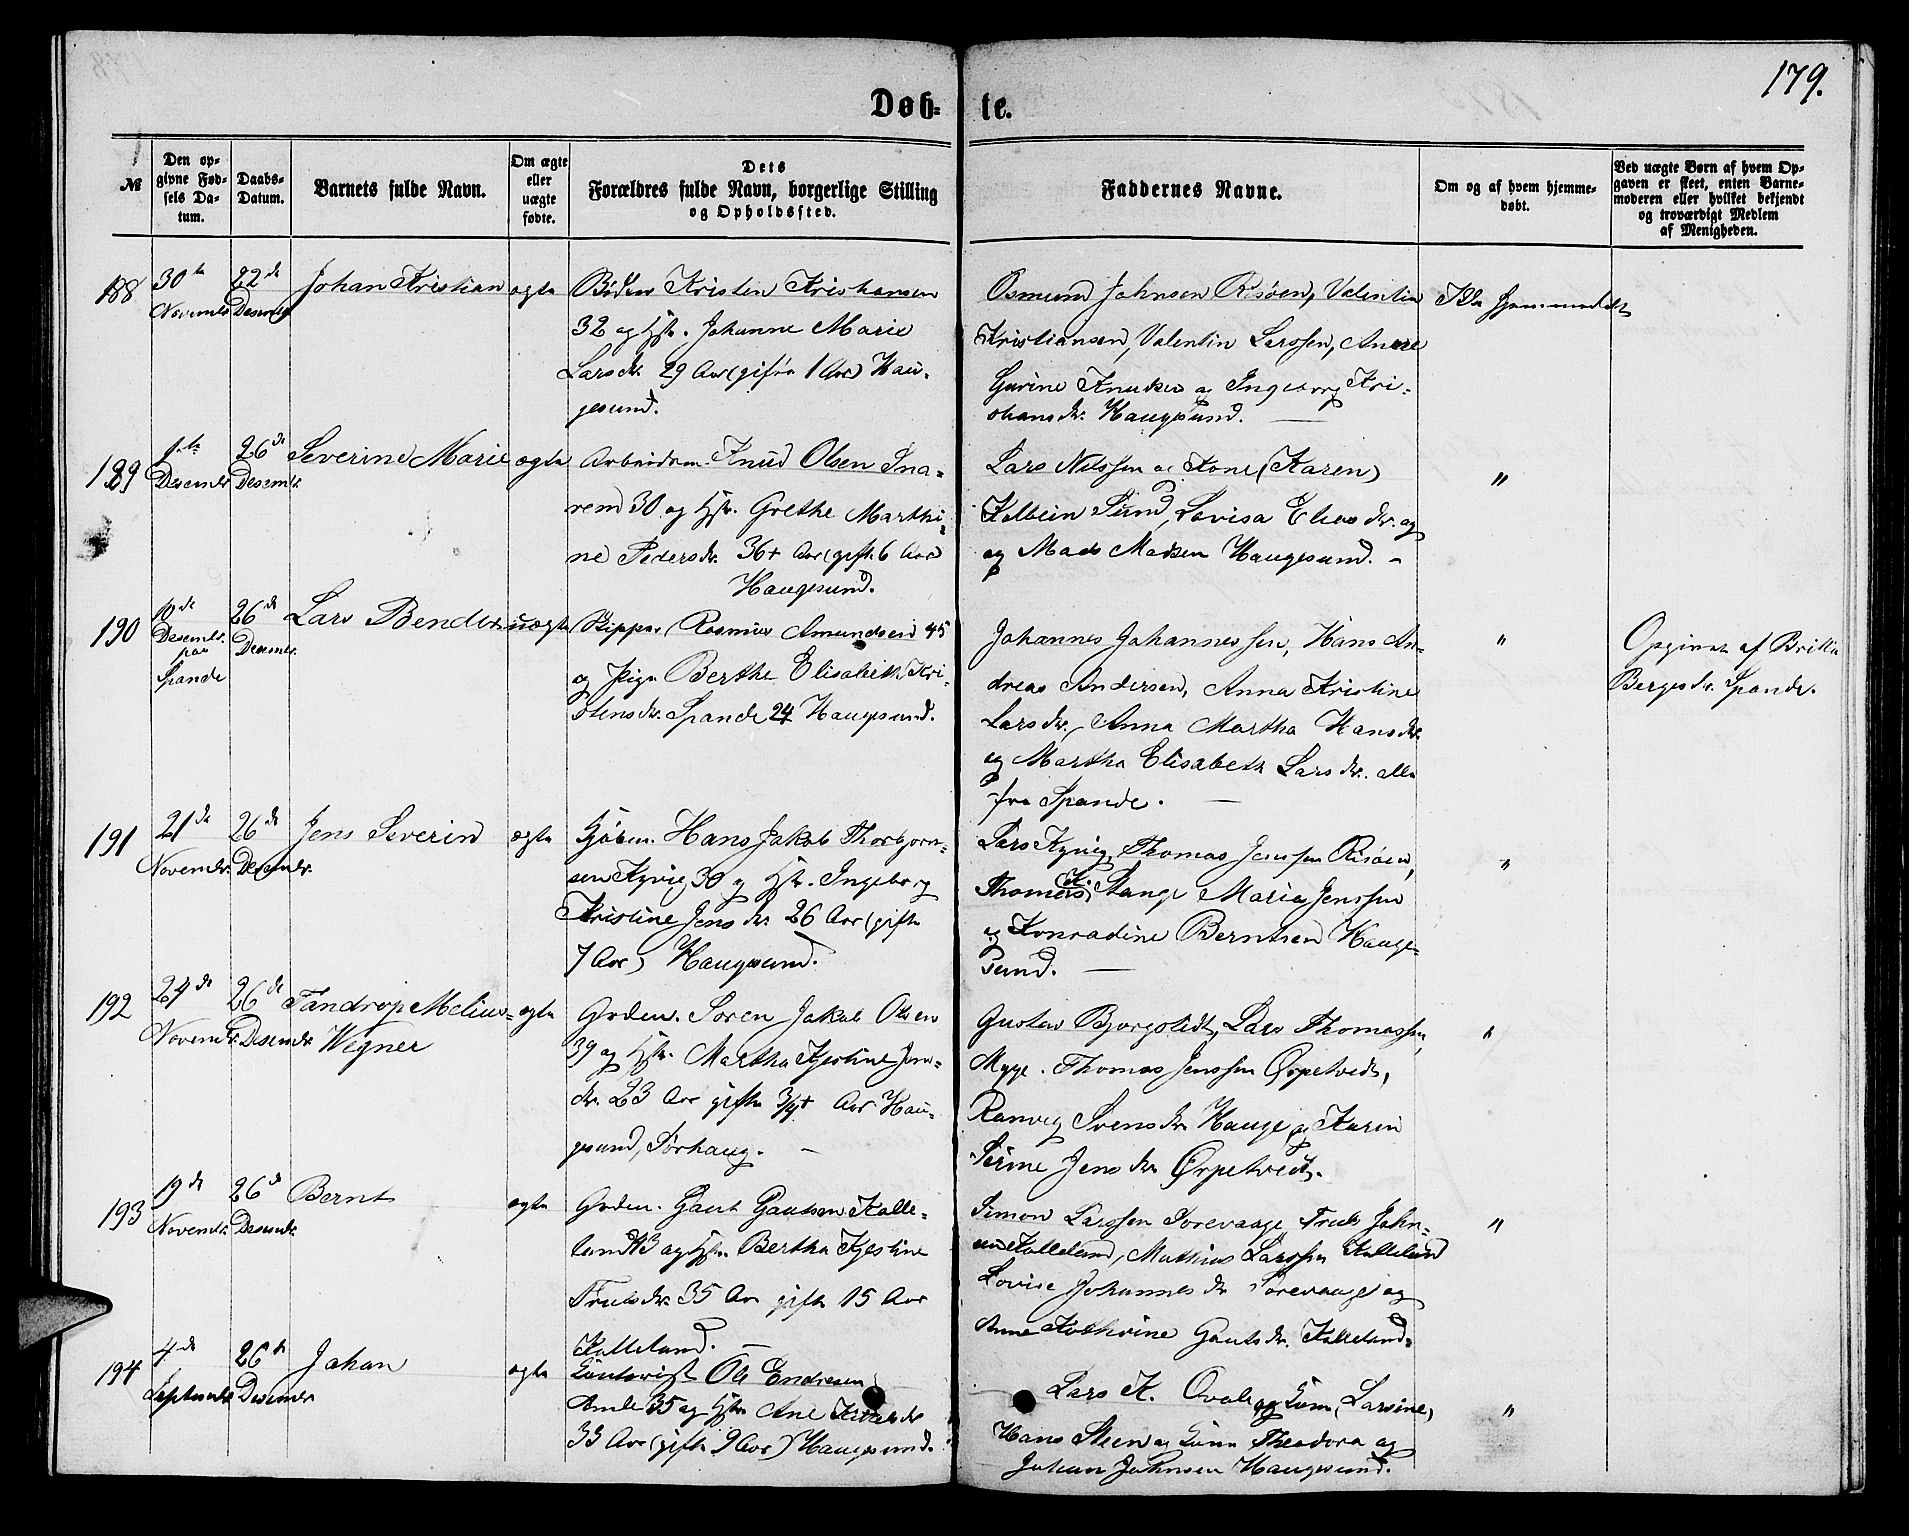 179.
Døb- te.
№
Den opgivne Fødsels Datum.
Daabs-Datum.
Barnets fulde Navn.
Om ægte eller uægte fødte.
Dets Forældres fulde Navn, borgerlige Stilling og Opholdssted.
Faddernes Navne.
Om og af hvem hjemmedøbt.
Ved uægte Børn af hvem Opgaven er skeet, enten Barnemoderen eller hvilket bekjendt og troværdigt Medlem af Menigheden.
188
30te Novembr.
22de Desembr.
Johan Kristian
ægte
Kristen Kristiansen
32 og Hstr. Johanne Marie
Larsdr. 29 Aar (gifte 1 Aar) Hau-
gesund.
Osmund Johnsen Risøen, Valentin
Kristiansen, Valentin Larssen, Anne
Gurine Knutsen og Ingeborg Kri-
stiansdr. Haugesund. —
Ikke hjemmedøbt
189
1ste Desembr.
26de Desembr.
Severine Marie
ægte
Arbeidsm. Knud Olsen Sna-
rem 30 og Hstr. Grethe Marthi-
ne Pedersdr. 36+ Aar (gifte 6 Aar)
Haugesund.
Lars Nilssen og Kone (Karen)
Kolbein Sund, Lovisa Eliasdr. og
og Mads Madsen Haugesund. -
"
190
10de Desembr. paa Spande
26de Desembr.
Lars Bender
uægte
Skipper Rasmus Amundsen 45
og Pige Berthe Elisabeth Kri-
stensdr. Spande 24 Haugesund.
Johannes Johannessen, Hans An-
dreas Andersen, Anna Kristine
Larsdr., Anna Martha Hansdr.
og Martha Elisabeth Larsdr. alle
fra Spande. —
"
Opgivet af Britha
Bergesdr. Spande.
191
21de Novembr.
26de Desembr.
Jens Severin
ægte
Hans Jakob Thorbjørn-
sen Kyvig 30 og Hstr. Ingeborg
Kristine Jensdr. 26 Aar (gifte
7 Aar) Haugesund.
Lars Kyvig, Thomas Jenssen Risøen,
Thomas K. Stange Maria Jenssen
og Konradine Berntsen Hauge-
sund. —
"
192
24de Novembr.
26de Desembr.
Tandrup Melius-
Wegner
ægte
Grdm. Søren Jakob Olsen
39 og Hstr. Martha Kjestine Jens-
dr. 23 Aar gifte 3/4+ Aar Hau-
gesund, Sørhaug. —
Gustav Bjorgstedt, Lars Thomassen,
Myge. Thomas Jenssen Ørpetvedt,
Ranveg Svensdr. Hauge, og Karen
Serine Jensdr. Ørpetvedt.
"
193
19de Novembr.
26de Desembr.
Bernt
ægte
Grdm. Gaut Gautsen Kalle-
land 43 og Hstr. Bertha Kjestine
Trulsdr. 35 Aar gifte 15 Aar
Kalleland. —
Simon Larssen Sorevaage Truls John-
sen Kalleland, Mathias Larssen Kalleland
Lovise Johannesdr. Sorevaage og
Anne Kathrine Gautsdr. Kalleland.
"
194
4de Septembr.
26de Desembr.
Johan
ægte
Ole Endresen
Amle 35 og Hstr. Ane
33 Aar (gifte 9 Aar) Haugesund.
Lars K. Qvale og Kone (Larsine)
Hans Steen og Kone Theodora og
Johan Johnsen Haugesund.
"